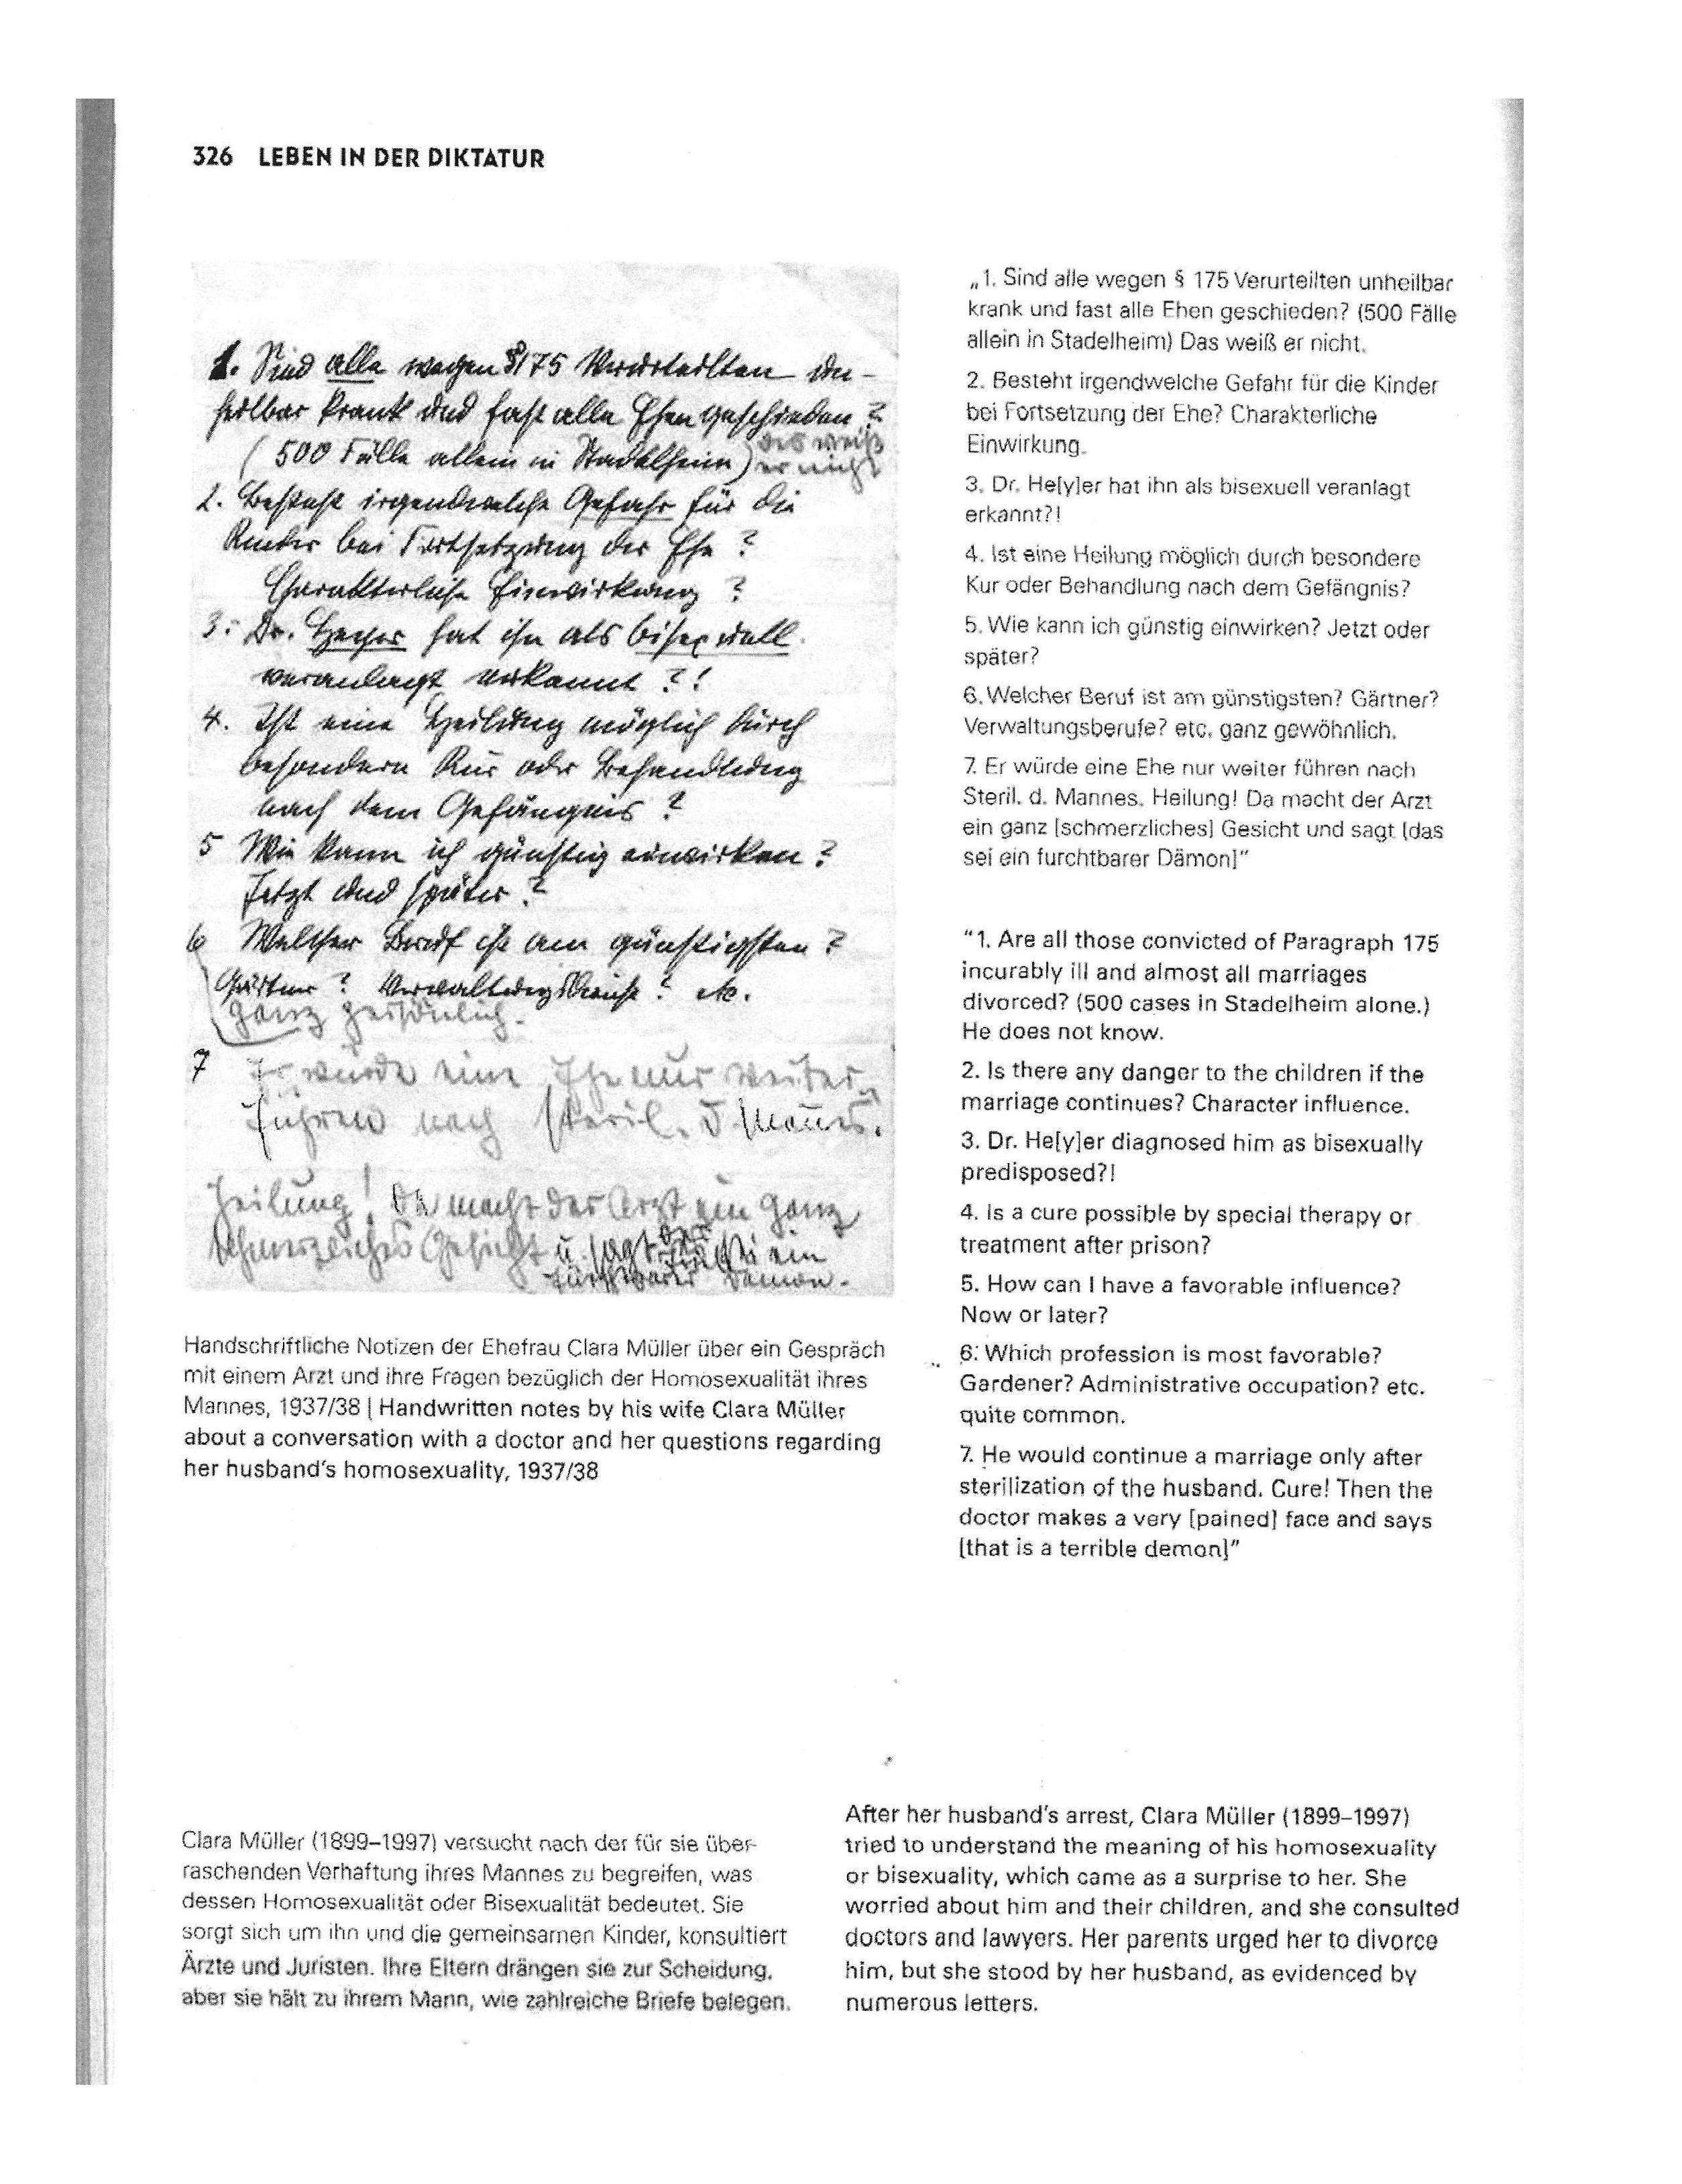 326 LEBEN IN DER DIKTATUR
1. Sind alle wegen § 175 Verurteilten un-
heilbar krank und fast alle Ehen geschieden?
(500 Fälle allein in Stadelheim) das weiß
er nicht
2. Besteht irgendwelche Gefahr für die
Kinder bei Fortsetzung der Ehe?
Charakterliche Einwirkung?
3. Dr. Heyer hat ihn als bisexuell
veranlagt erkannt?!
4. Ist eine Heilung möglich durch
besondere Kur oder Behandlung
nach dem Gefängnis?
5 Wie kann ich günstig einwirken?
Jetzt und später?
6 Welcher Beruf ist am günstigsten?
Gärtner? Verwaltungsberufe? etc.
ganz
7 Er würde eine Ehe nur weiter
führen nach Steril. d. Mannes.
Heilung! Da macht der Arzt ein ganz
schmerzliches Gesicht u. sagt das sei ein
furchtbarer Dämon.
Handschriftliche Notizen der Ehefrau Clara Müller über ein Gespräch
mit einem Arzt und ihre Fragen bezüglich der Homosexualität ihres
Mannes, 1937/38 | Handwritten notes by his wife Clara Müller
about a conversation with a doctor and her questions regarding
her husband's homosexuality, 1937/38
„1. Sind alle wegen § 175 Verurteilten unheilbar
krank und fast alle Ehen geschieden? (500 Fälle
allein in Stadelheim) Das weiß er nicht.
2. Besteht irgendwelche Gefahr für die Kinder
bei Fortsetzung der Ehe? Charakterliche
Einwirkung.
3. Dr. He[y]er hat ihn als bisexuell veranlagt
erkannt?!
4. Ist eine Heilung möglich durch besondere
Kur oder Behandlung nach dem Gefängnis?
5. Wie kann ich günstig einwirken? Jetzt oder
später?
6. Welcher Beruf ist am günstigsten? Gärtner?
Verwaltungsberufe? etc. ganz gewöhnlich.
7. Er würde eine Ehe nur weiter führen nach
Steril. d. Mannes. Heilung! Da macht der Arzt
ein ganz [schmerzliches] Gesicht und sagt [das
sei ein furchtbarer Dämon]"
"1. Are all those convicted of Paragraph 175
incurably ill and almost all marriages
divorced? (500 cases in Stadelheim alone.)
He does not know.
2. Is there any danger to the children if the
marriage continues? Character influence.
3. Dr. He[y]er diagnosed him as bisexually
predisposed?!
4. Is a cure possible by special therapy or
treatment after prison?
5. How can I have a favorable influence?
Now or later?
6. Which profession is most favorable?
Gardener? Administrative occupation? etc.
quite common.
7. He would continue a marriage only after
sterilization of the husband. Cure! Then the
doctor makes a very [pained] face and says
[that is a terrible demon]"
Clara Müller (1899–1997) versucht nach der für sie über-
raschenden Verhaftung ihres Mannes zu begreifen, was
dessen Homosexualität oder Bisexualität bedeutet. Sie
sorgt sich um ihn und die gemeinsamen Kinder, konsultiert
Ärzte und Juristen. Ihre Eltern drängen sie zur Scheidung,
aber sie hält zu ihrem Mann, wie zahlreiche Briefe belegen.
After her husband's arrest, Clara Müller (1899–1997)
tried to understand the meaning of his homosexuality
or bisexuality, which came as a surprise to her. She
worried about him and their children, and she consulted
doctors and lawyers. Her parents urged her to divorce
him, but she stood by her husband, as evidenced by
numerous letters.